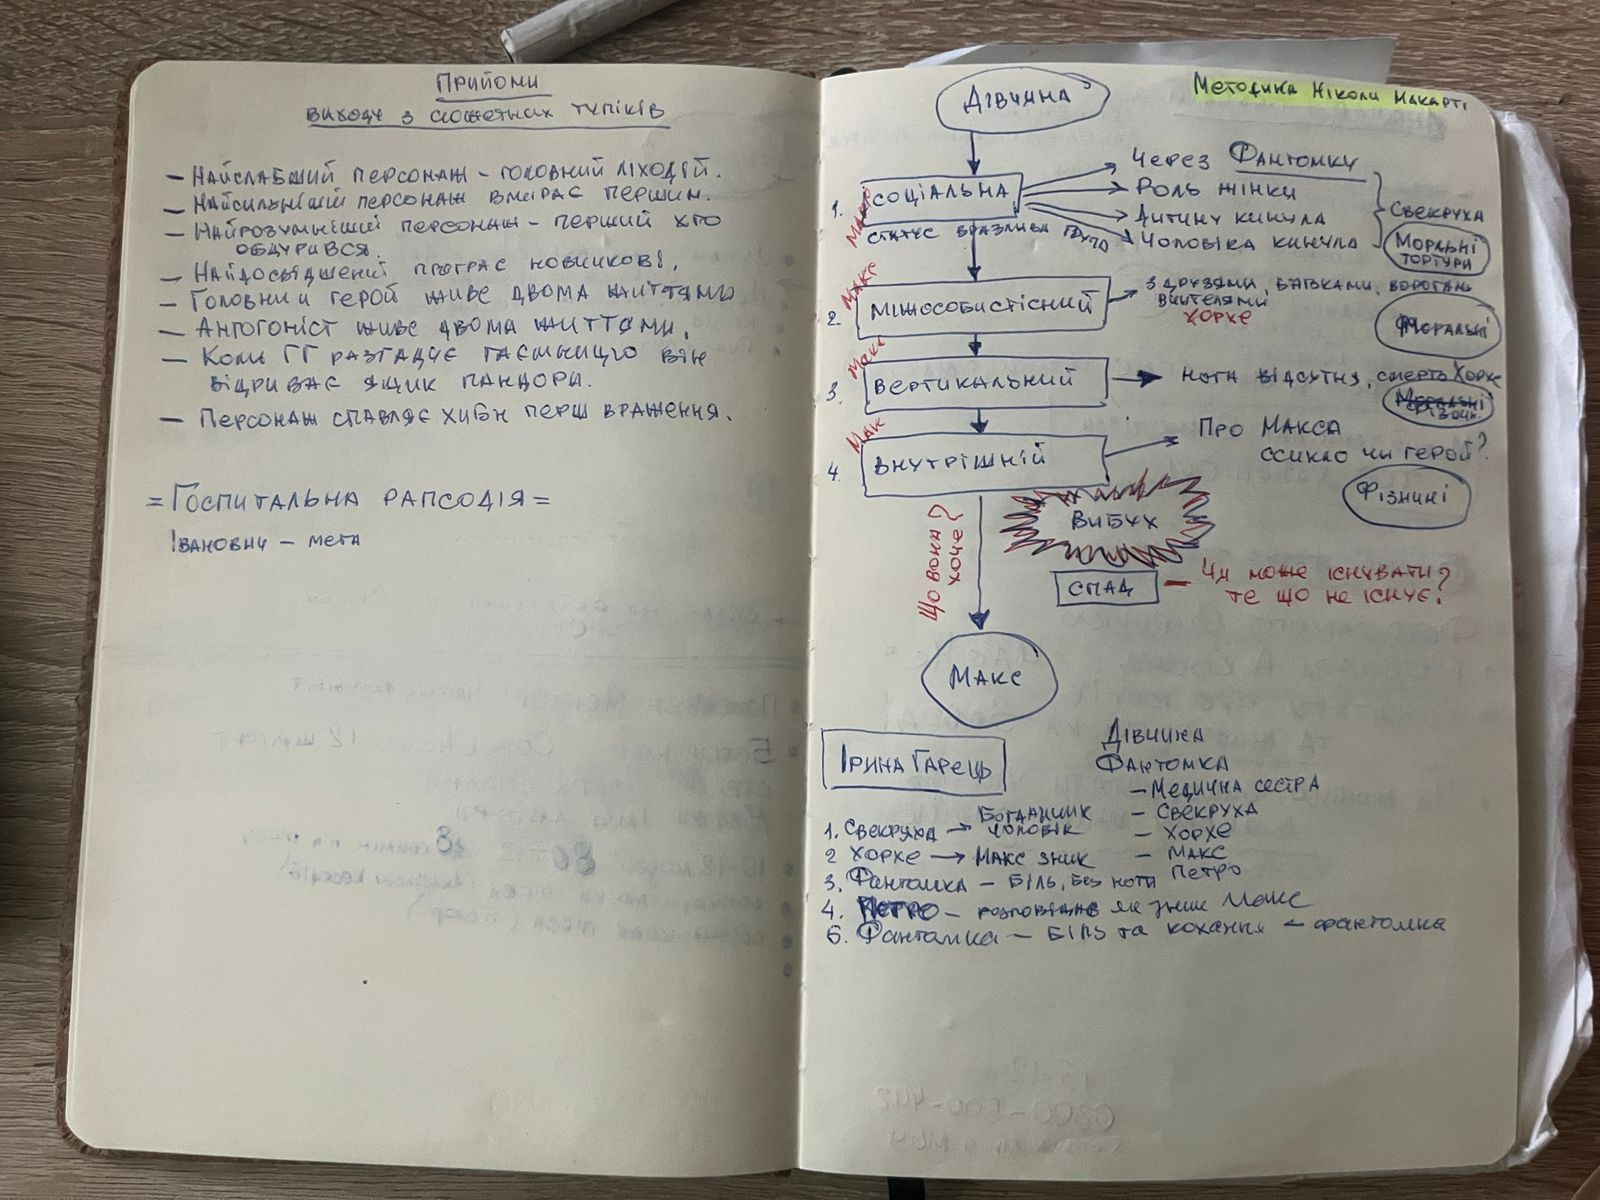 Прийоми
виходу з сюжетних тупіків
— Найслабший персонаж – головний ліходій.
— Найсильніший персонаж вмірає першим.
— Найрозумніший персонаж – перший хто
обдурився.
— Найдосвідшений програє новичкові.
— Головний герой живе двома життями
— Антогоніст живе двома життями.
— Коли ГГ разгадує таємницю він
відриває ящик пандори.
— Персонаж справляє хибн перш враження.
= Госпитальна рапсодія =
Іванович – мета
Методика Ніколи Макарті
Дівчина
1. Соціальна
Макс
статус вразлива
Через Фантомку
Роль жінки
Дитину кинула
Чоловіка кинула
Свекруха
Моральні
тортури
2. Міжособистісний
Макс
З друзями, батьками, ворогами
вчителями
Хорхе
Моральні
3. Вертикальний
Макс
Нога відсутня, смерть Хорхе
4. Внутрішній
Мак
Про Макса
ссикло чи герой?
Фізичні
Вибух
Що вона
хоче?
Спад — Чи може існувати?
те що не існує?
Макс
Ірина Гарець
Дівчина
Фантомка
— Медична сестра
— Свекруха
— Хорхе
— Макс
Петро
1. Свекруха → Богданчик
чоловік
2 Хорхе → Макс зник
3. Фантомка – біль, без ноги
4. Петро – розповідає як зник Макс
6. Фантомка – біль та кохання – фантомка